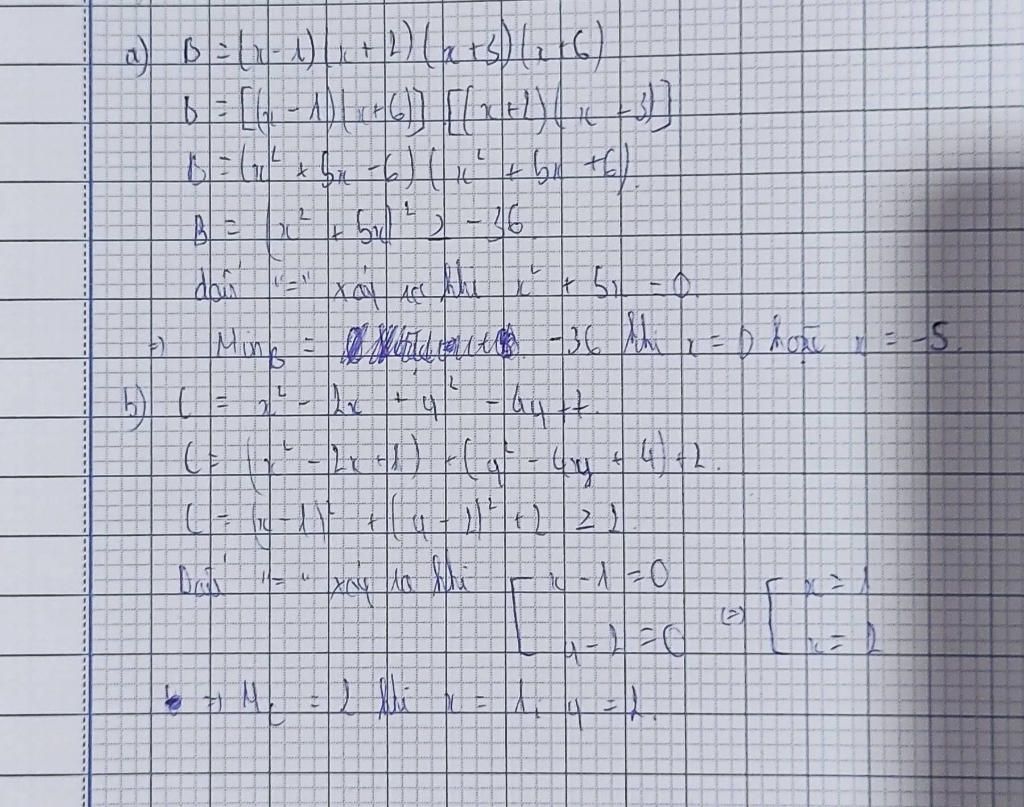 a) B = (x - 1)(x + 2)(x + 3)(x + 6)
B = [(x - 1)(x + 6)] [(x + 2)(x + 3)]
B = (x² + 5x - 6)(x² + 5x + 6).
B = (x² + 5x)² ≥ - 36
dấu "=" xảy ra khi x² + 5x = 0.
=> Min_B = - 36 khi x = 0 hoặc x = -5.
b) C = x² - 2x + y² - 4y + 7.
C = (x² - 2x + 1) + (y² - 4y + 4) + 2.
C = (x - 1)² + (y - 2)² + 2 ≥ 2
Dấu "=" xảy ra khi [ x - 1 = 0 y - 2 = 0 (=) [ x = 1 x = 2
=> M_C = 2 khi x = 1, y = 2.